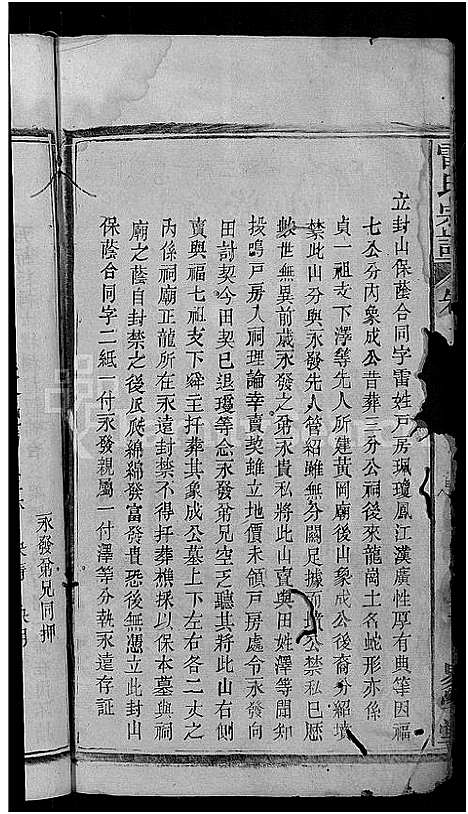 雷氏宗譜
立封山保蔭合同字雷姓戸房珮瓊鳳江漢廣性厚有典等因福
七公分內象成公昔葬三分公祠後來龍崗土名蛇形亦係
貞一祖支下澤等先人所建黃岡廟後山象成公後裔分紹墳
禁此山分與永發先人管紹雖無分關足據而公禁私已歷
數世無異前歲永發之弟永貴私將此山賣與田姓澤等聞知
投鳴戸房人祠理論幸賣契雖立地價未領戸房處令永發向
田討契今田契已退瓊等念永發弟兄空乏聽其將此山右側
賣與福七祖支下舜主扦葬其象成公墓上下左右各二丈之
內係祠廟正龍所在永遠封禁不得扦葬樵採以保本墓與祠
廟之蔭自封禁之後瓜瓞綿綿發富發貴恐後無憑立此封山
保蔭合同字二紙一付永發親屬一付澤等分執永遠存証
永發弟兄同押